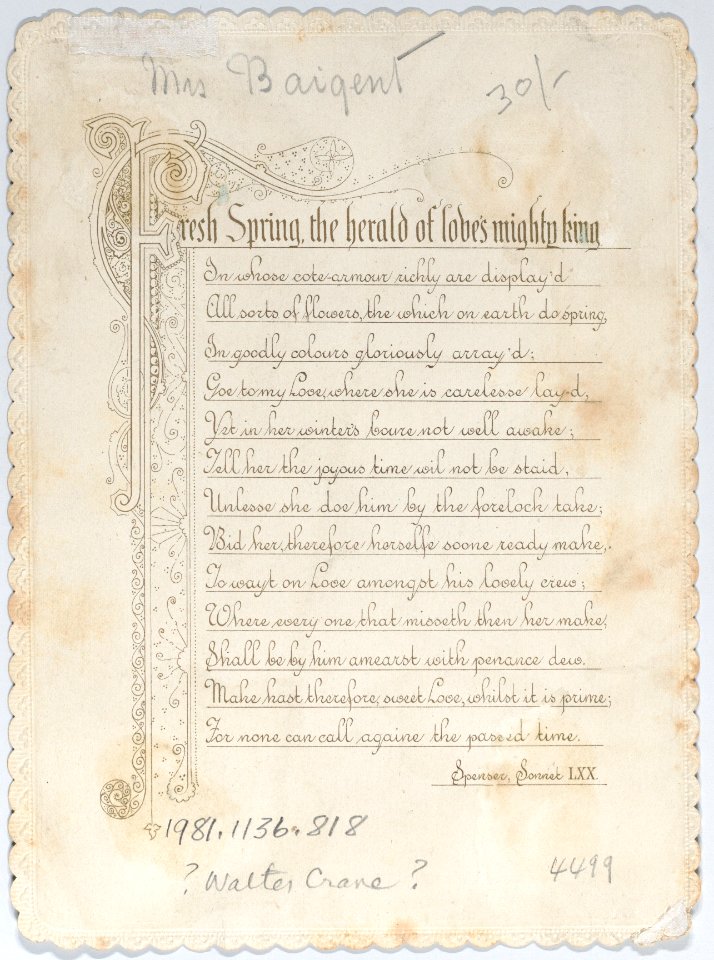 Mrs Baigent
30/-
Fresh Spring, the herald of love's mighty king
In whose cote-armour richly are display'd
All sorts of flowers, the which on earth do spring,
In goodly colours gloriously array'd;
Goe to my Love, where she is carelesse lay-d,
Yet in her winter's boure not well awake;
Tell her the joyous time wil not be staid,
Unlesse she doe him by the forelock take;
Bid her, therefore herselfe soone ready make,
To wayt on Love amongst his lovely crew;
Where every one that misseth then her make,
Shall be by him amearst with penance dew.
Make hast therefore, sweet Love, whilst it is prime;
For none can call againe the passed time.
Spenser, Sonnet LXX.
1981.1136.818
? Walter Crane ?
4499